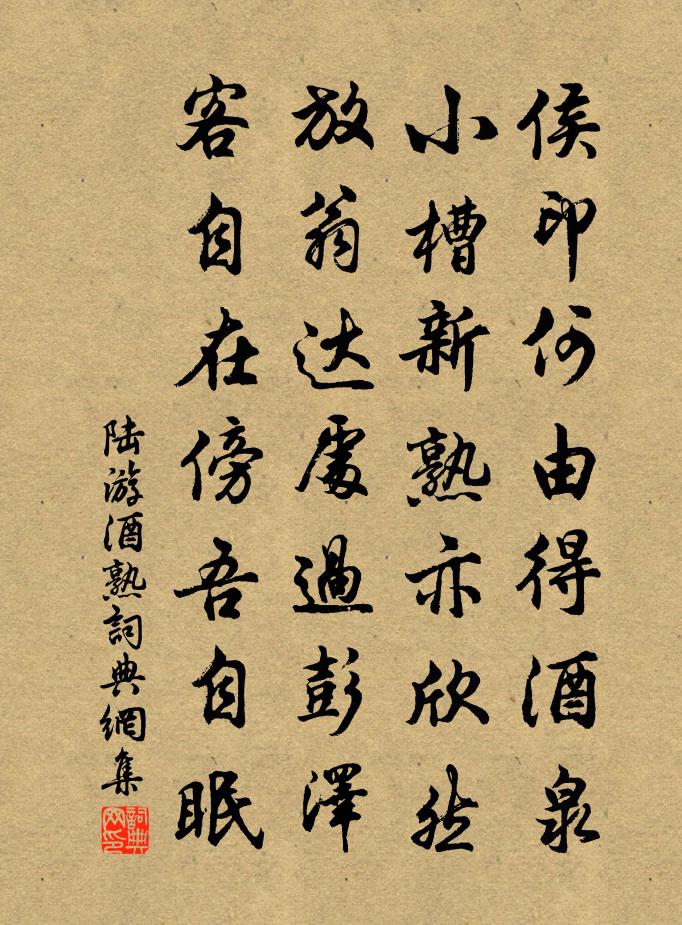 侯印何由得酒泉
小槽新熟亦欣然
放翁达處過彭澤
客自在傍吾自眠
陆游酒熟詞典網集
詞典网印